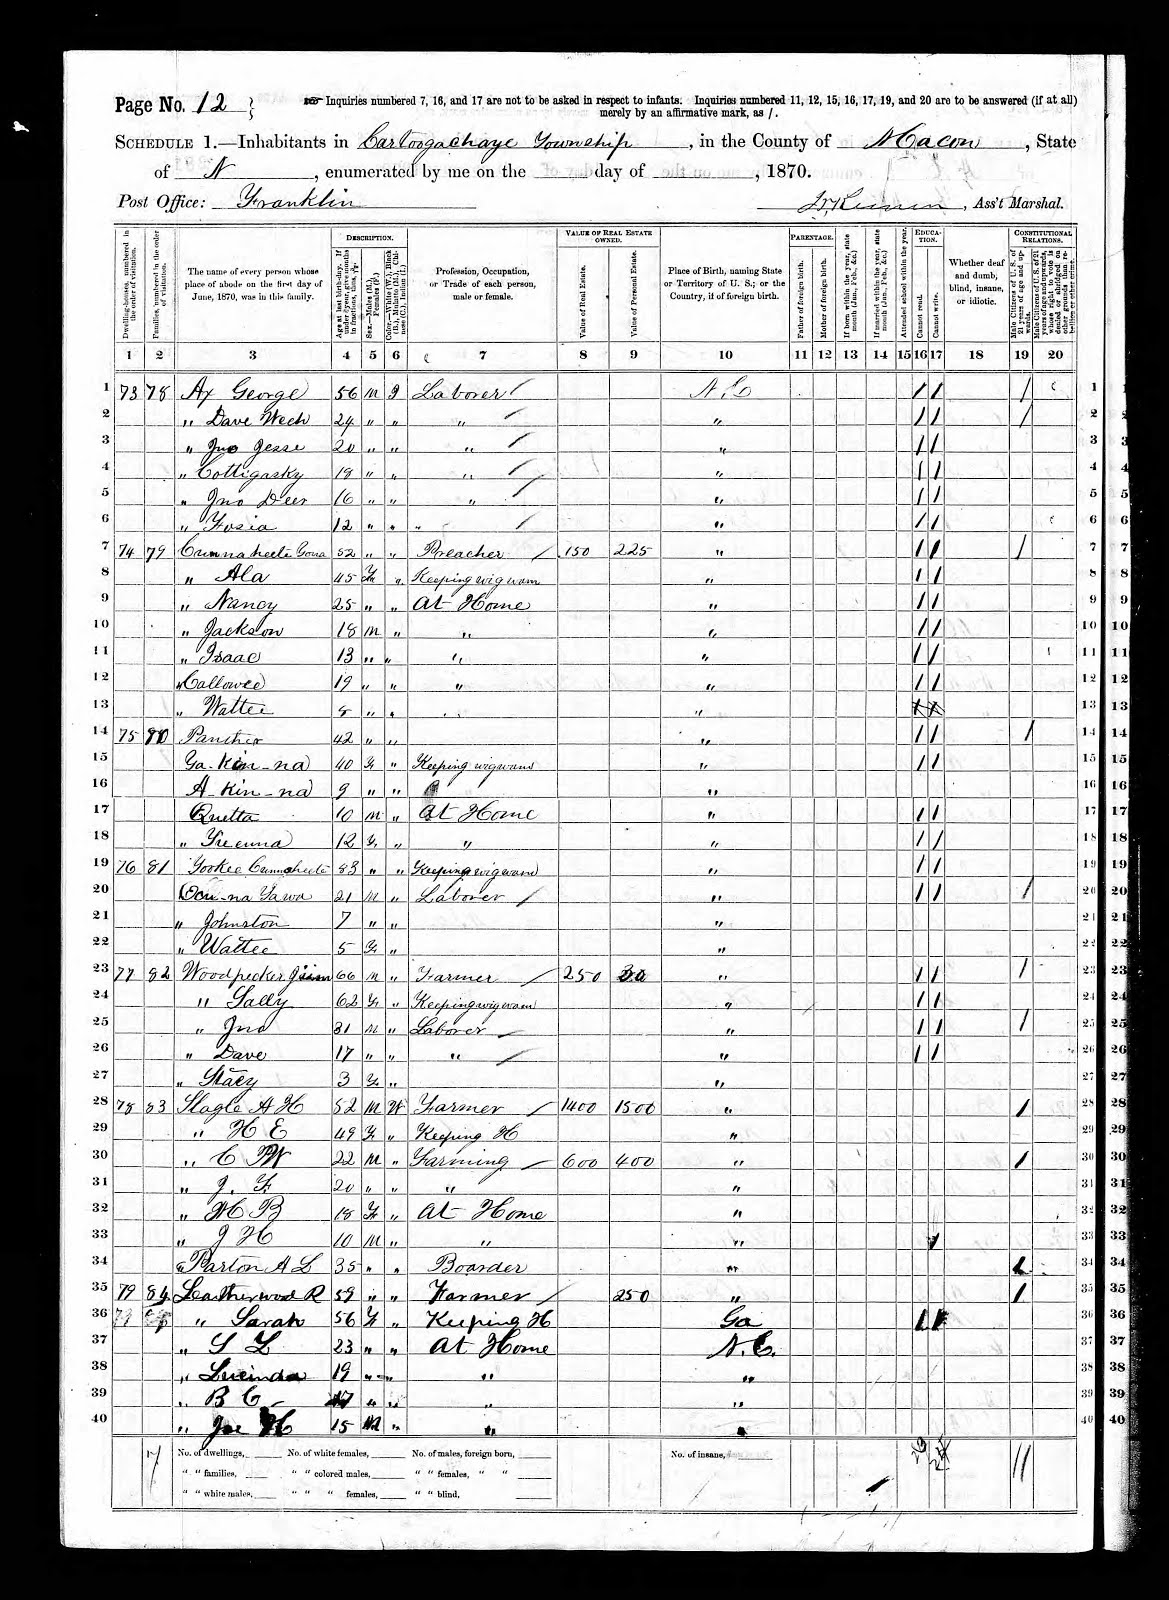 Page No. 12
☞ Inquiries numbered 7, 16, and 17 are not to be asked in respect to infants. Inquiries numbered 11, 12, 15, 16, 17, 19, and 20 are to be answered (if at all)
merely by an affirmative mark, as /.
SCHEDULE 1.—Inhabitants in Cartoogachaye Township, in the County of Macon, State
of N, enumerated by me on the day of , 1870.
Post Office: Franklin , Ass't Marshal.
Dwelling-houses, numbered in the order of visitation.
Families, numbered in the order of visitation.
The name of every person whose place of abode on the first day of June, 1870, was in this family.
DESCRIPTION.
Age at last birth-day. If under 1 year, give months in fractions, thus, 3/12.
Sex.—Males (M.), Females (F.).
Color.—White (W.), Black (B.), Mulatto (M.), Chinese (C.), Indian (I.).
Profession, Occupation, or Trade of each person, male or female.
VALUE OF REAL ESTATE OWNED.
Value of Real Estate.
Value of Personal Estate.
Place of Birth, naming State or Territory of U. S.; or the Country, if of foreign birth.
PARENTAGE.
Father of foreign birth.
Mother of foreign birth.
If born within the year, state month (Jan., Feb., &c.)
If married within the year, state month (Jan., Feb., &c.)
Attended school within the year.
EDUCATION.
Cannot read.
Cannot write.
Whether deaf and dumb, blind, insane, or idiotic.
CONSTITUTIONAL RELATIONS.
Male Citizens of U. S. of 21 years of age and upwards.
Male Citizens of U. S. of 21 years of age and upwards, whose right to vote is denied or abridged on other grounds than rebellion or other crime.
1 2 3 4 5 6 7 8 9 10 11 12 13 14 15 16 17 18 19 20
1 73 78 Ax George 56 M I Laborer / N.C / / / 1
2 " Dave Wech 24 " " " / " / / / 2
3 " Jno Jesse 20 " " " / " / / 3
4 " Cottigasky 18 " " " / " / / 4
5 " Jno Deer 16 " " " / " / / 5
6 " 12 " " " / " / / 6
7 74 79 Cunnaheete Gona 52 " " Preacher / 150 225 " / / / 7
8 " Ala 45 F " Keeping wigwam " / / 8
9 " Nancy 25 " " At Home " / / 9
10 " Jackson 18 M " " " / / 10
11 " Isaac 13 " " " " / / 11
12 " Callowee 19 " " " " / / 12
13 " Wattee 8 " " " " 13
14 75 80 Panther 42 " " " / / / 14
15 Ya-kin-na 40 F " Keeping wigwam " / / 15
16 A-kin-na 9 " " " 16
17 Quetta 10 M " At Home " / / 17
18 " 12 F " " " / / 18
19 76 81 Yookee Cunnaheete 83 " " Keeping wigwam " / / 19
20 21 M " Laborer / " / / / 20
21 " Johnston 7 " " " 21
22 " Wattee 5 F " " 22
23 77 82 Woodpecker Jim 66 M " Farmer / 250 30 " / / / 23
24 " Sally 62 F " Keeping wigwam " / / 24
25 " Jno 31 M " Laborer / " / / / 25
26 " Dave 17 " " " / " / / 26
27 " Stacy 3 F " " 27
28 78 83 Slagle A H 52 M W Farmer / 1400 1500 " / 28
29 " H E 49 F " Keeping H " 29
30 " C W 22 M " Farming / 600 400 " / 30
31 " J. F 20 " " " " 31
32 " M B 18 F " At Home " 32
33 " J H 10 M " " " / 33
34 Parton A L 35 " " Boarder " / 34
35 79 84 Leatherwood R 59 " " Farmer / 250 " / 35
36 " Sarah 56 F " Keeping H Ga / / 36
37 " S L 23 " " At Home N.C. 37
38 " Lucinda 19 " " " " 38
39 " B C 17 " " " " 39
40 " Joe H 15 M " " " 40
7 No. of dwellings, No. of white females, No. of males, foreign born, No. of insane, 26 11
" " families, " " colored males, " " females, " "
" " white males, " " " females, " " blind,